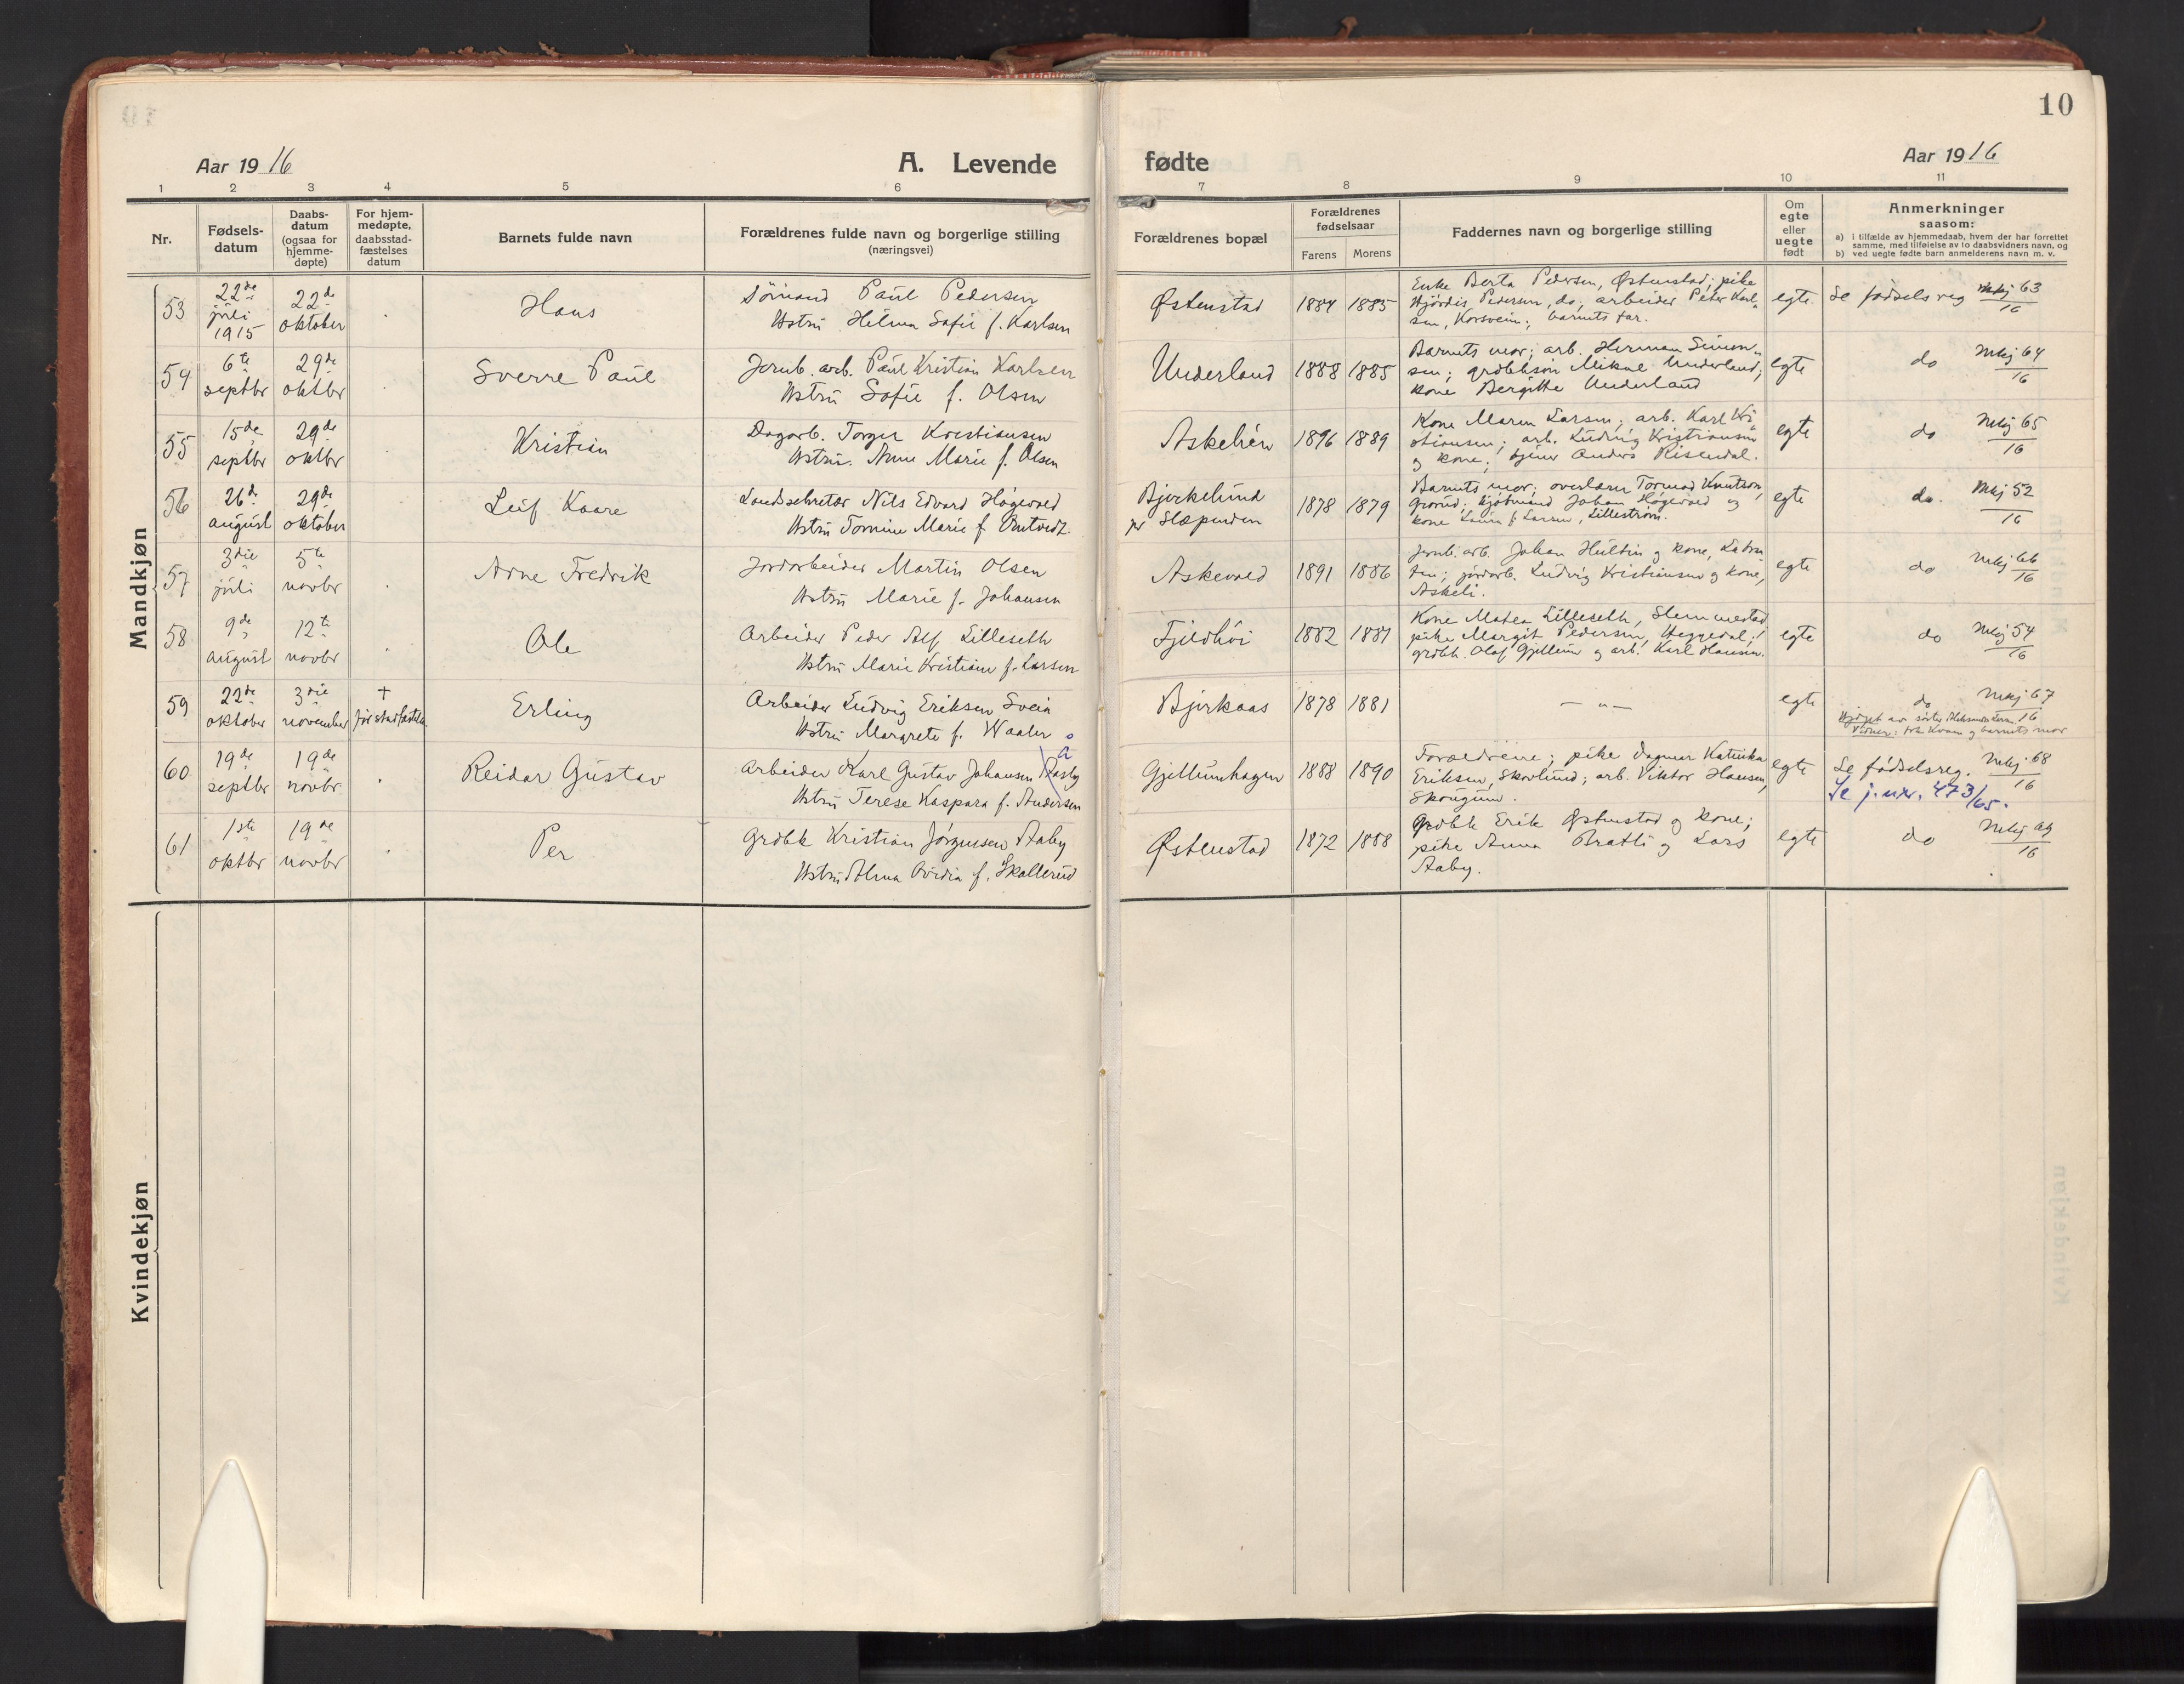 10
Aar 1916
A. Levende
fødte
Aar 1916
1 2 3 4 5 6 7 8 9 10 11
Nr.
Fødsels-
datum
Daabs-
datum
(ogsaa for
hjemme-
døpte)
For hjem-
medøpte,
daabsstad-
fæstelses
datum
Barnets fulde navn
Forældrenes fulde navn og borgerlige stilling
(næringsvei)
Forældrenes bopæl
Forældrenes
fødselsaar
Farens Morens
Faddernes navn og borgerlige stilling
Om
egte
eller
uegte
født
Anmerkninger
saasom:
a) i tilfælde av hjemmedaab, hvem der har forrettet
samme, med tilføielse av to daabsvidners navn, og
b) ved uegte fødte barn anmelderens navn m. v.
Mandkjøn
53
22de
juli
1915
22de
oktober
Hans
Sømand Paul Pedersen
Hstru Helma Sofie f. Karlsen
Østenstad
1884 1885
Enke Berta Pedersen, Østenstad; pike
Hjördis Pedersen, do; arbeider Peter Karl-
sen, Korsveien; barnets far.
egte
Se fødselsreg
Mkj 63
16
54
6te
septbr
29de
oktbr
Sverre Paul
Jernb. arb. Paul Kristian Karlsen
Hstru Sofie f. Olsen
Underland
1888 1885
Barnets mor; arb. Herman Simon-
sen; grdbksøn Mikal Underland;
kone Bergitte Underland
egte
do
Mkj 64
16
55
15de
septbr
29de
oktbr
Kristian
Dagarb. Torger Kristiansen
Hstru. Anne Marie f. Olsen
Askelien
1896 1889
Kone Maren Larsen; arb. Karl Kri
stiansen; arb. Ludvig Kristiansen
og kone; tjener Anders Risendal.
egte
do
Mkj 65
16
56
26de
august
29de
oktober
Leif Kaare
Landssekretær Nils Edvard Høgevold
Hstru Tomine Marie f.
Bjerkelund
pr Slæpenden
1878 1879
Barnets mor; overlærer Tormod Knutson,
Grorud; Johan Høgevold og
kone Laura f. Larsen, Lillestrøm.
egte
do.
Mkj 52
16
57
3die
juli
5te
novbr
Arne Fredrik
Jordarbeider Martin Olsen
Hstru Marie f. Johansen
Askevold
1891 1886
Jernb. arb. Johan Hultin og kone,
jordarb. Ludvig Kristiansen og kone,
Askeli.
egte
do
Mkj 66
16
58
9de
august
12te
novbr
Ole
Arbeider Peder Alf Lilleseth
Hstru Marie Kristiane f. Larsen
Fjeldhöi
1882 1881
Kone Matea Lilleseth, Slemmestad
pike Margit Pedersen, Heggedal;
grdbk. Olaf Gjellum og arb. Karl Hansen.
egte
do
Mkj 54
16
59
22de
oktober
3die
november
†
før stadfæstelse
Erling
Arbeider Ludvig Eriksen Svein
Hstru Margrete f. Waaler
Bjerkaas
1878 1881
— „ —
egte
do
Mkj 67
16
Vidner: frk Kvam og barnets mor
60
19de
septbr
19de
novbr
Reidar Gustav
Arbeider Karl Gustav Johansen Aasby
Hstru Terese Kaspara f. Andersen
Gjellumhagen
1888 1890
Forældrene; pike Dagmar Katinka
Eriksen, Skovlund; arb. Viktor Hansen,
Skougum.
egte
Se fødselsreg.
Mkj 68
16
Se j.nr. 473/65.
61
1ste
oktbr
19de
novbr
Per
Grdbk Kristian Jørgensen Aaby
Hstru Alma Ovidia f. Skallerud
Østenstad
1872 1888
Grdbk Erik Østenstad og kone;
pike Anna Bratli og Lars
Aaby.
egte
do
Mkj 69
16
Kvindekjøn